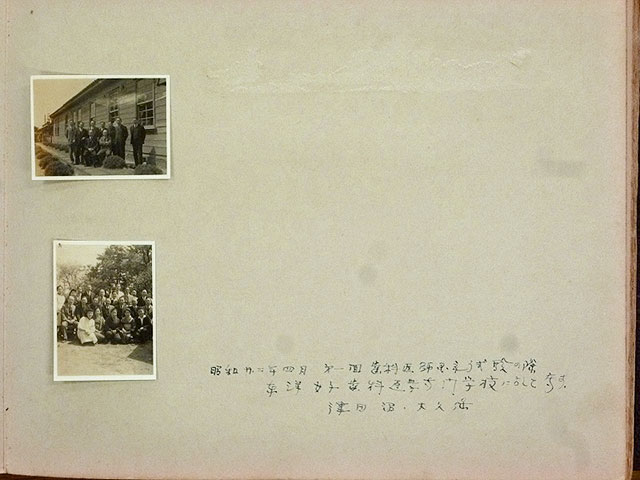 昭和廿二年四月 第一回 歯科医師国家試験の際
東洋女子歯科医学専門学校にて
津田沼・大久保